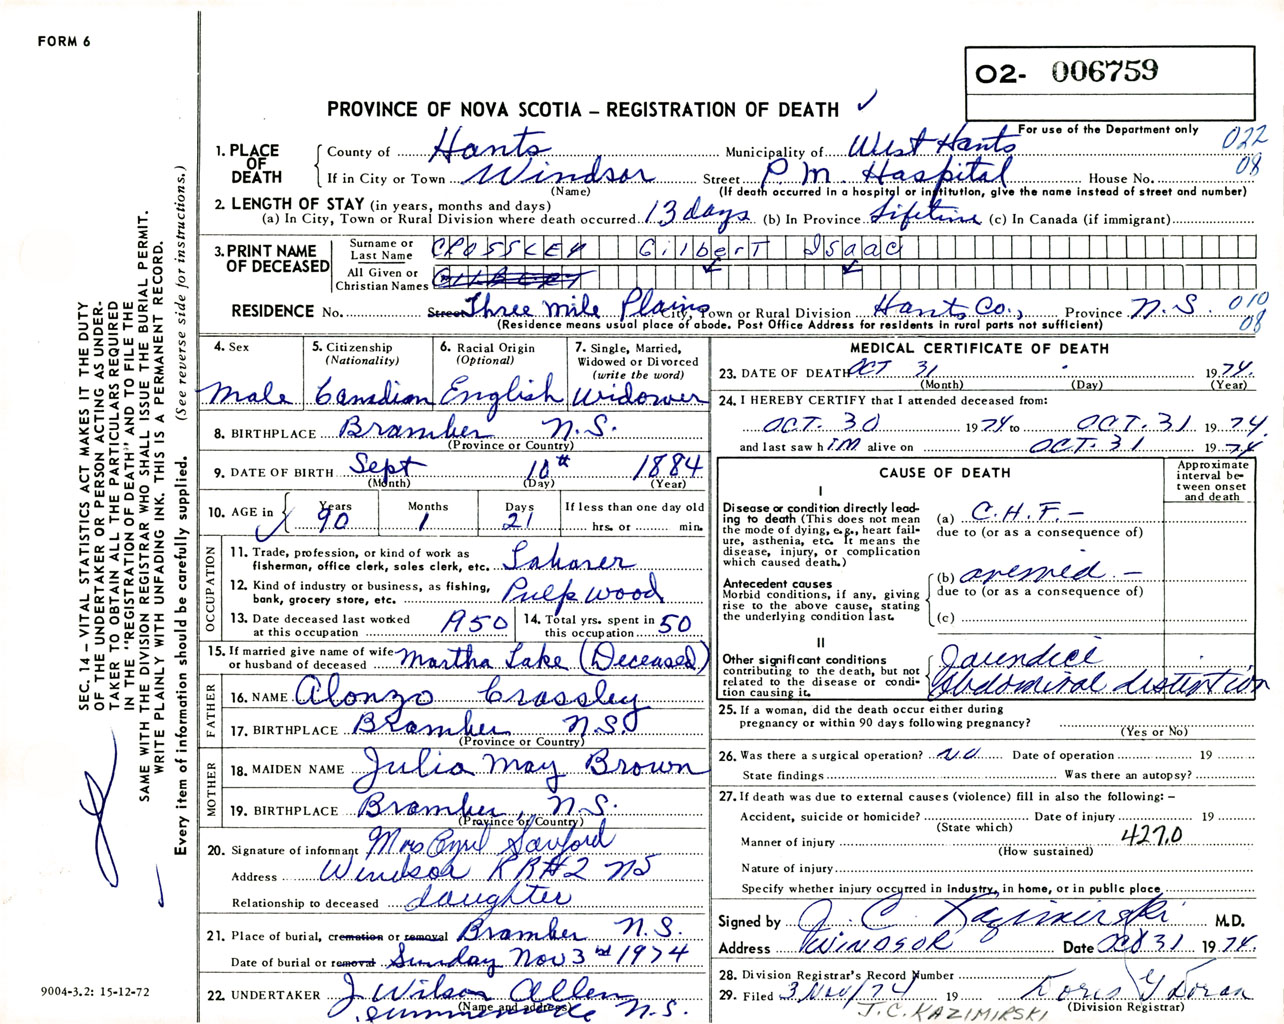 FORM 6
O2- 006759
PROVINCE OF NOVA SCOTIA – REGISTRATION OF DEATH ✓
For use of the Department only
022
08
1. PLACE OF DEATH
County of Hants Municipality of West Hants
If in City or Town Windsor Street P M. Haspital House No.
(Name) (If death occurred in a hospital or institution, give the name instead of street and number)
2. LENGTH OF STAY (in years, months and days)
(a) In City, Town or Rural Division where death occurred 13 days (b) In Province Lifetime (c) In Canada (if immigrant)
3. PRINT NAME OF DECEASED
Surname or Last Name CROSSLEY GilbErT ISaac
All Given or Christian Names GILBERT
RESIDENCE No. Street Three Mile Plains City, Town or Rural Division Hants Co., Province N.S. 010
08
(Residence means usual place of abode. Post Office Address for residents in rural parts not sufficient)
4. Sex
Male
5. Citizenship
(Nationality)
Canadian
6. Racial Origin
(Optional)
English
7. Single, Married, Widowed or Divorced
(write the word)
Widower
8. BIRTHPLACE Bramber N.S.
(Province or Country)
9. DATE OF BIRTH Sept 10th 1884
(Month) (Day) (Year)
10. AGE in Years 90 Months 1 Days 21 If less than one day old hrs. or min.
OCCUPATION
11. Trade, profession, or kind of work as fisherman, office clerk, sales clerk, etc. Laborer
12. Kind of industry or business, as fishing, bank, grocery store, etc. Pulp wood
13. Date deceased last worked at this occupation 1950
14. Total yrs. spent in this occupation 50
15. If married give name of wife or husband of deceased Martha Lake (Deceased)
FATHER
16. NAME Alonzo Crossley
17. BIRTHPLACE Bramber N.S.
(Province or Country)
MOTHER
18. MAIDEN NAME Julia May Brown
19. BIRTHPLACE Bramber, N.S.
(Province or Country)
20. Signature of informant Mrs Sanford
Address Windsor RR#2 NS
Relationship to deceased daughter
21. Place of burial, cremation or removal Bramber N.S.
Date of burial or removal Sunday Nov 3rd 1974
22. UNDERTAKER J Wilson Allen
(Name and address)
Summerville N.S.
MEDICAL CERTIFICATE OF DEATH
23. DATE OF DEATH OCT 31 1974.
(Month) (Day) (Year)
24. I HEREBY CERTIFY that I attended deceased from:
OCT. 30 1974 to OCT. 31 1974
and last saw h IM alive on OCT. 31 1974
CAUSE OF DEATH
Approximate interval between onset and death
I
Disease or condition directly leading to death (This does not mean the mode of dying, e.g., heart failure, asthenia, etc. It means the disease, injury, or complication which caused death.)
(a) C.H.F. –
due to (or as a consequence of)
Antecedent causes
Morbid conditions, if any, giving rise to the above cause, stating the underlying condition last.
(b)
due to (or as a consequence of)
(c)
II
Other significant conditions contributing to the death, but not related to the disease or condition causing it.
Jaundice
Abdominal distention
25. If a woman, did the death occur either during pregnancy or within 90 days following pregnancy?
(Yes or No)
26. Was there a surgical operation? NO Date of operation 19
State findings Was there an autopsy?
27. If death was due to external causes (violence) fill in also the following: –
Accident, suicide or homicide? Date of injury 19
(State which)
Manner of injury 427.0
(How sustained)
Nature of injury
Specify whether injury occurred in Industry, in home, or in public place
Signed by J. C. Kazimirski M.D.
Address WINDSOR Date Oct 31 1974.
28. Division Registrar's Record Number
29. Filed 3 Nov/74 19 Doris Y Doran
(Division Registrar)
J.C. KAZIMIRSKI
SEC. 14 – VITAL STATISTICS ACT MAKES IT THE DUTY
OF THE UNDERTAKER OR PERSON ACTING AS UNDER-
TAKER TO OBTAIN ALL THE PARTICULARS REQUIRED
IN THE "REGISTRATION OF DEATH" AND TO FILE THE
SAME WITH THE DIVISION REGISTRAR WHO SHALL ISSUE THE BURIAL PERMIT.
WRITE PLAINLY WITH UNFADING INK. THIS IS A PERMANENT RECORD.
Every item of information should be carefully supplied. (See reverse side for instructions.)
9004-3.2: 15-12-72